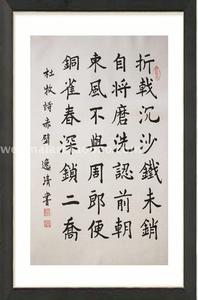 折戟沉沙鐵未銷
自將磨洗認前朝
東風不與周郎便
銅雀春深鎖二喬
杜牧詩赤壁 逸清書